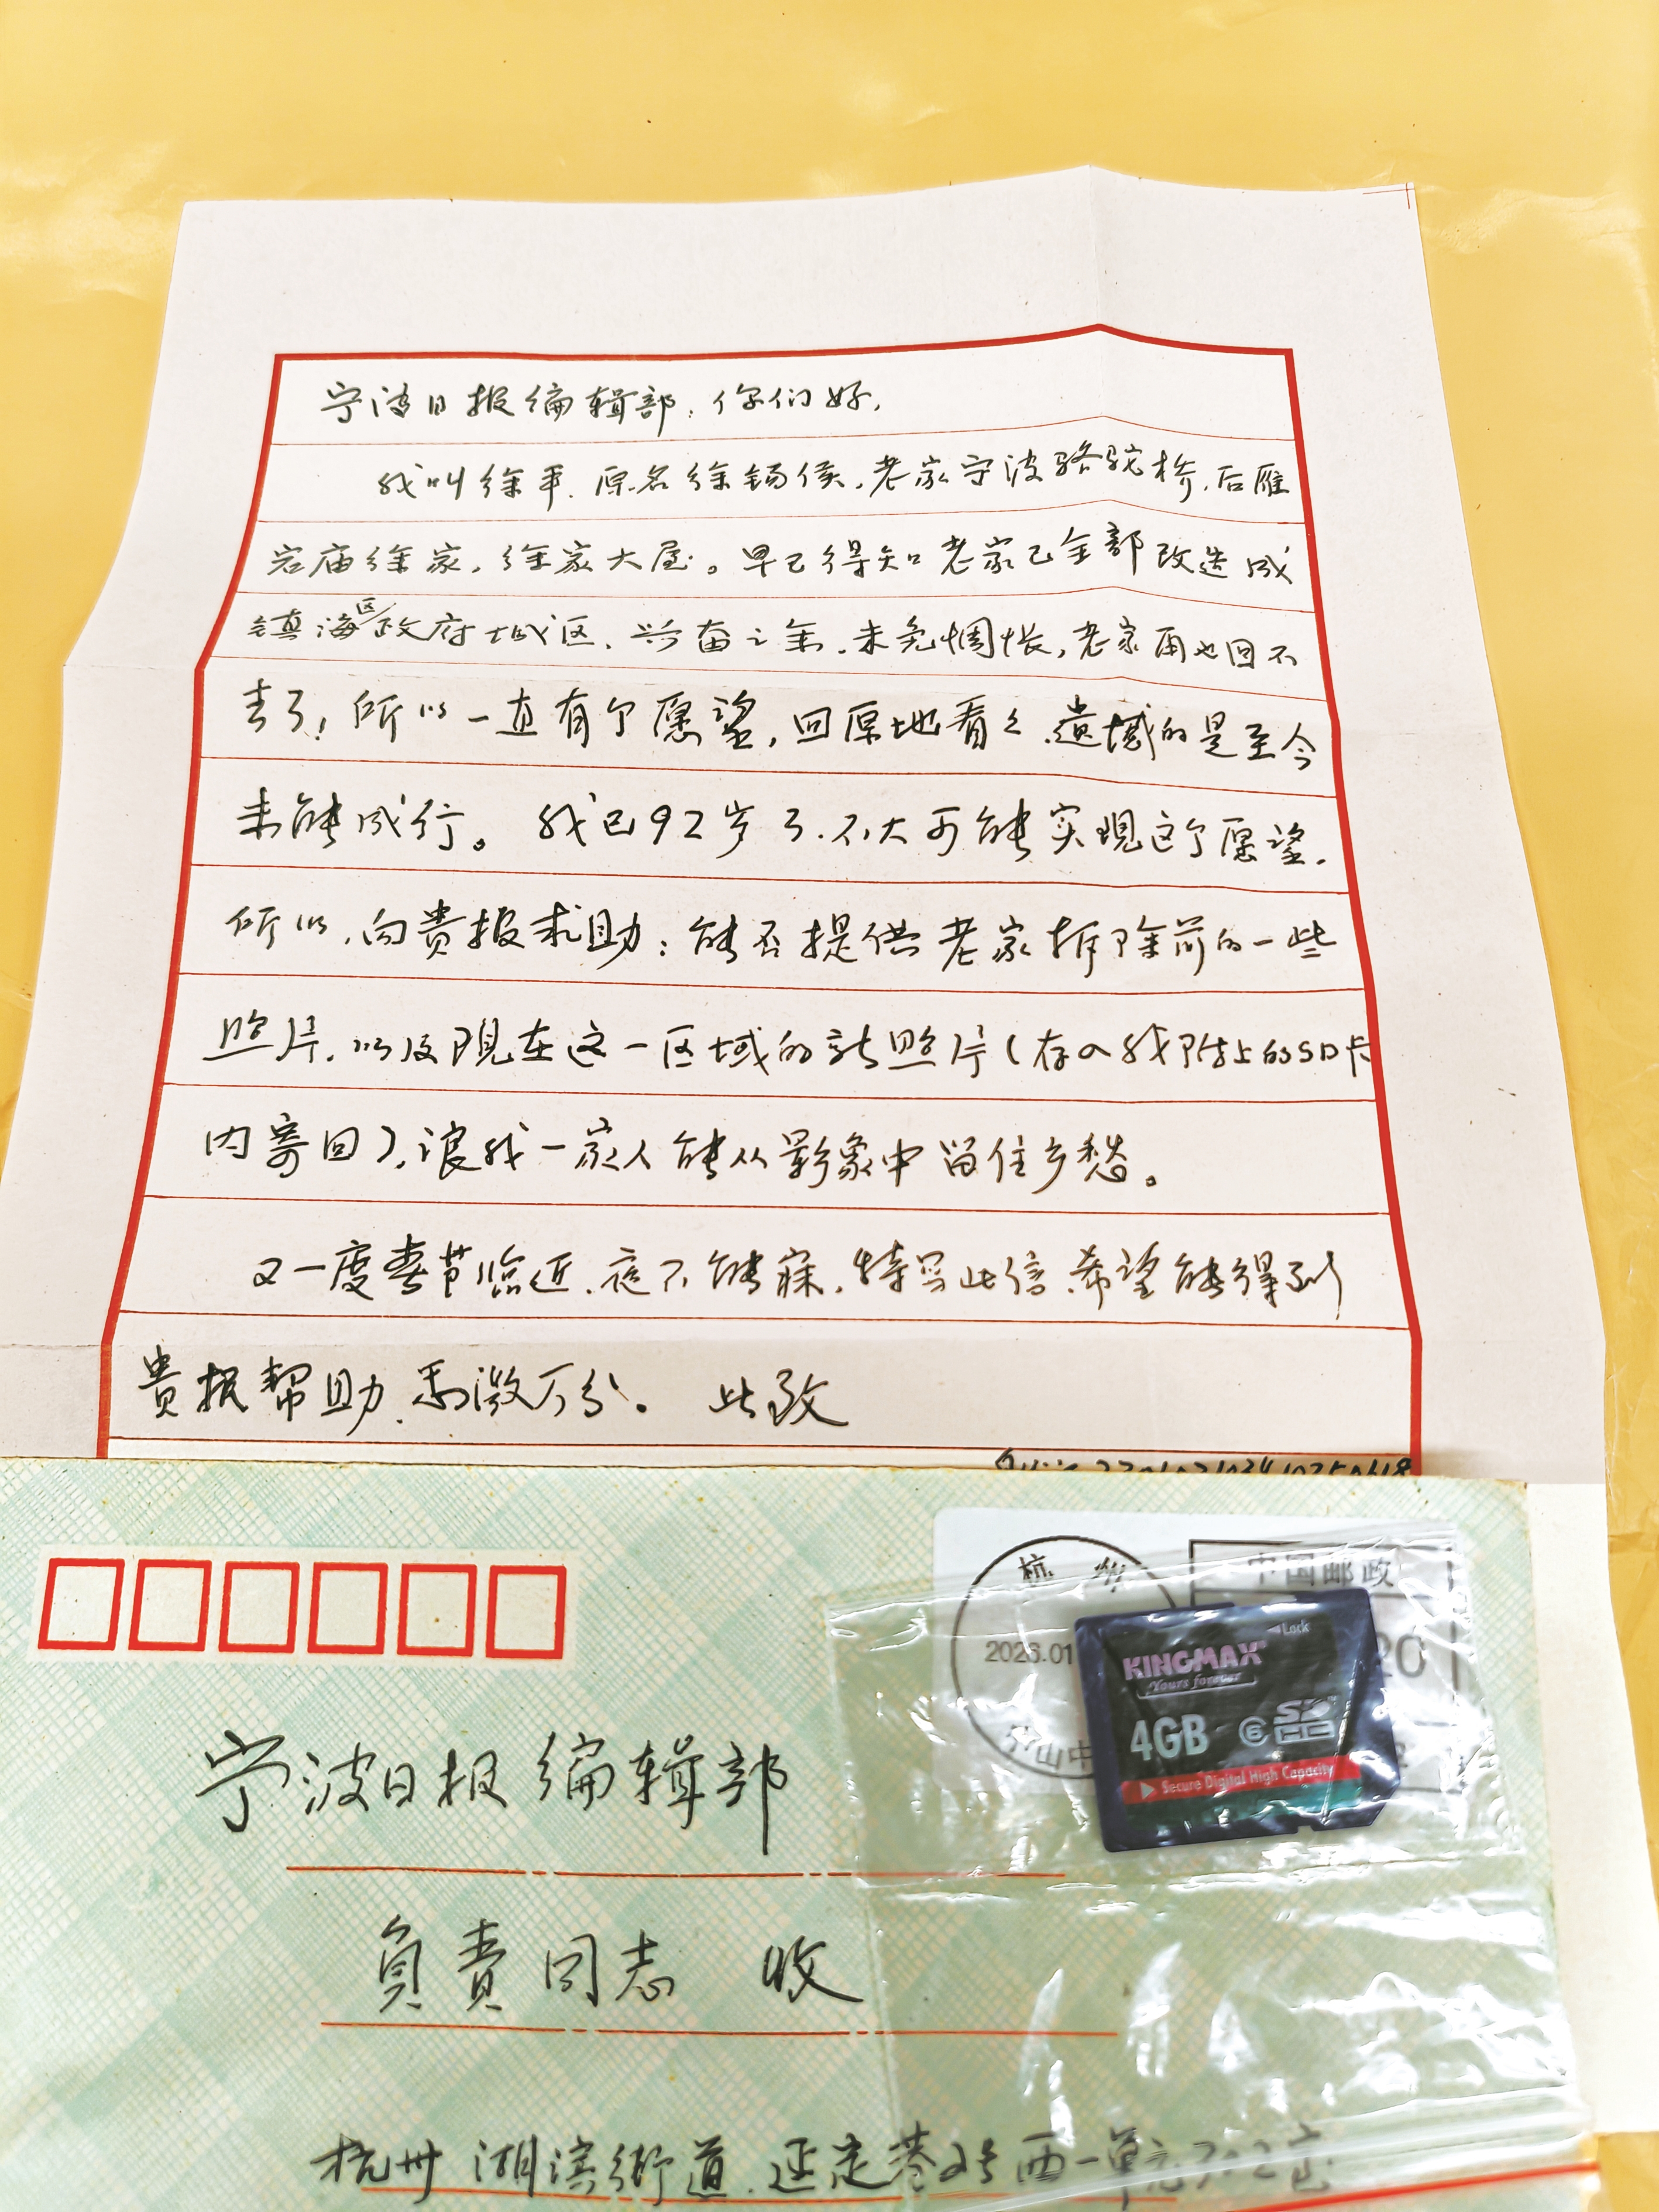 宁波日报编辑部：你们好，
我叫徐平，原名徐锡侯，老家宁波骆驼桥，后雁
宕庙徐家，徐家大屋。早已得知老家已全部改造成
镇海区政府城区，兴奋之余，未免惆怅，老家再也回不
去了，所以一直有个愿望，回原地看看，遗憾的是至今
未能成行。我已92岁了，不大可能实现这个愿望，
所以，向贵报求助：能否提供老家拆除前的一些
照片，以及现在这一区域的新照片（存入我附上的SD卡
内寄回），让我一家人能从影象中留住乡愁。
又一度春节临近，夜不能寐，特写此信，希望能得到
贵报帮助，感激万分。 此致
杭州
中国邮政
2026.01
20
山中
Lock
KINGMAX
Yours forever
4GB
6
SD
HC
Secure Digital High Capacity
宁波日报编辑部
负责同志 收
杭州 湖滨街道 延定巷2号西一单元702室